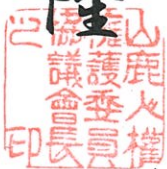 山鹿人權
擁護委員
協議會長
之印